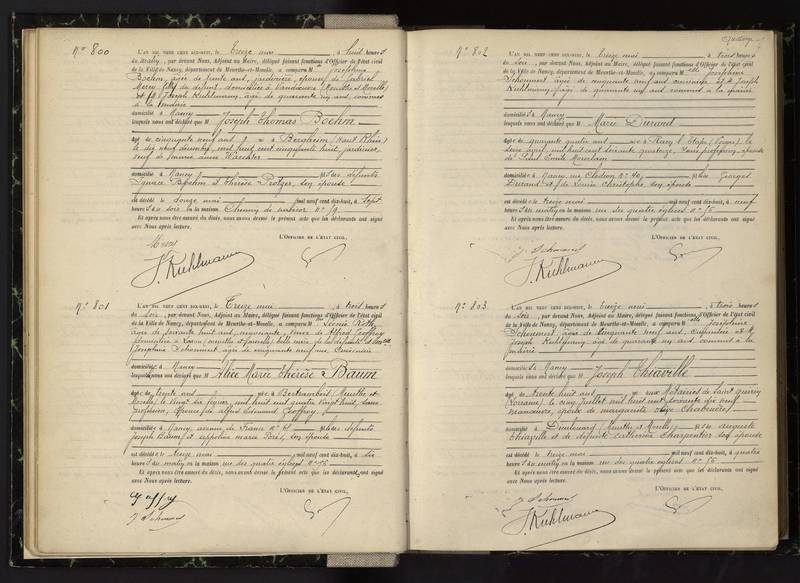 N° 800
L'AN MIL NEUF CENT DIX-HUIT, le treize mai, à huit heures
du matin, par devant Nous, Adjoint au Maire, délégué faisant fonctions d'Officier de l'état civil
de la Ville de Nancy, département de Meurthe-et-Moselle, a comparu M Joséphine
Boehm, âgée de trente ans, jardinière, épouse de Gabriel
Mercy domiciliée à Vandoeuvre (Meurthe et Moselle)
et Joseph Kuhlmann, âgé de quarante un ans, commis
à la mairie
domicilié à Nancy
lesquels nous ont déclaré que M Joseph Thomas Boehm
âgé de cinquante neuf ans, né à Bergheim (Haut Rhin)
le dix neuf décembre mil huit cent cinquante huit, jardinier,
veuf de
domicilié à Nancy, fils des défunts
Ignace Boehm et Thérèse, son épouse
est décédé le douze mai mil neuf cent dix-huit, à sept
heures du soir en la maison
Et après nous être assuré du décès, nous avons dressé le présent acte que les déclarants ont signé
avec Nous après lecture.
L'OFFICIER DE L'ÉTAT CIVIL,
Mercy
J. Kuhlmann
N° 801
L'AN MIL NEUF CENT DIX-HUIT, le treize mai, à trois heures
du soir, par devant Nous, Adjoint au Maire, délégué faisant fonctions d'Officier de l'état civil
de la Ville de Nancy, département de Meurthe-et-Moselle, a comparu M Léonie
âgée de soixante huit ans, veuve de Alfred Geoffroy
domiciliée à (Meurthe et Moselle) belle mère de la défunte et
Joséphine Schoumert âgée de cinquante neuf ans, cuisinière
domiciliée à Nancy
lesquels nous ont déclaré que M Alice Marie Thérèse Baum
âgée de trente ans, née à Bertrambois (Meurthe et
Moselle) le vingt six février mil huit cent quatre vingt huit, sans
profession, épouse de Alfred Edmond Geoffroy
domiciliée à Nancy, avenue de France n° 41, fille des défunts
Joseph Baum et, son épouse
est décédée le treize mai mil neuf cent dix-huit, à six
heures du matin en la maison rue des quatre églises n° 55
Et après nous être assuré du décès, nous avons dressé le présent acte que les déclarants ont signé
avec Nous après lecture.
L'OFFICIER DE L'ÉTAT CIVIL,
J. Schoumert
N° 802
L'AN MIL NEUF CENT DIX-HUIT, le treize mai, à trois heures
du soir, par devant Nous, Adjoint au Maire, délégué faisant fonctions d'Officier de l'état civil
de la Ville de Nancy, département de Meurthe-et-Moselle, a comparu M Joséphine
Schoumert âgée de cinquante neuf ans cuisinière et Joseph
Kuhlmann, âgé de quarante un ans commis à la mairie
domicilié à Nancy
lesquels nous ont déclaré que M Marie Durand
âgée de quarante quatre ans, née à Raon l'Étape (Vosges) le
août mil huit cent soixante quatorze, sans profession, épouse
de Paul Émile
domiciliée à Nancy, n° 40, fille Georges
Durand et de Louise Christophe, son épouse
est décédée le treize mai mil neuf cent dix-huit, à neuf
heures du matin en la maison rue des quatre églises n° 55
Et après nous être assuré du décès, nous avons dressé le présent acte que les déclarants ont signé
avec Nous après lecture.
L'OFFICIER DE L'ÉTAT CIVIL,
J. Schoumert
J. Kuhlmann
N° 803
L'AN MIL NEUF CENT DIX-HUIT, le treize mai, à trois heures
du soir, par devant Nous, Adjoint au Maire, délégué faisant fonctions d'Officier de l'état civil
de la Ville de Nancy, département de Meurthe-et-Moselle, a comparu M Joséphine
Schoumert âgée de cinquante neuf ans, cuisinière et
Joseph Kuhlmann, âgé de quarante un ans commis à la
mairie
domicilié à Nancy
lesquels nous ont déclaré que M Joseph Thiaville
âgé de trente huit ans, né aux Métairies de Saint Quirin
(Lorraine) le cinq juillet mil huit cent soixante dix neuf
manoeuvre, époux de Marguerite Chabrier
domicilié à Dombasle (Meurthe et Moselle), fils Auguste
Thiaville et de défunte Catherine Charpentier son épouse
est décédé le treize mai mil neuf cent dix-huit, à quatre
heures du matin en la maison rue des quatre églises n° 55
Et après nous être assuré du décès, nous avons dressé le présent acte que les déclarants ont signé
avec Nous après lecture.
L'OFFICIER DE L'ÉTAT CIVIL,
J. Schoumert
J. Kuhlmann